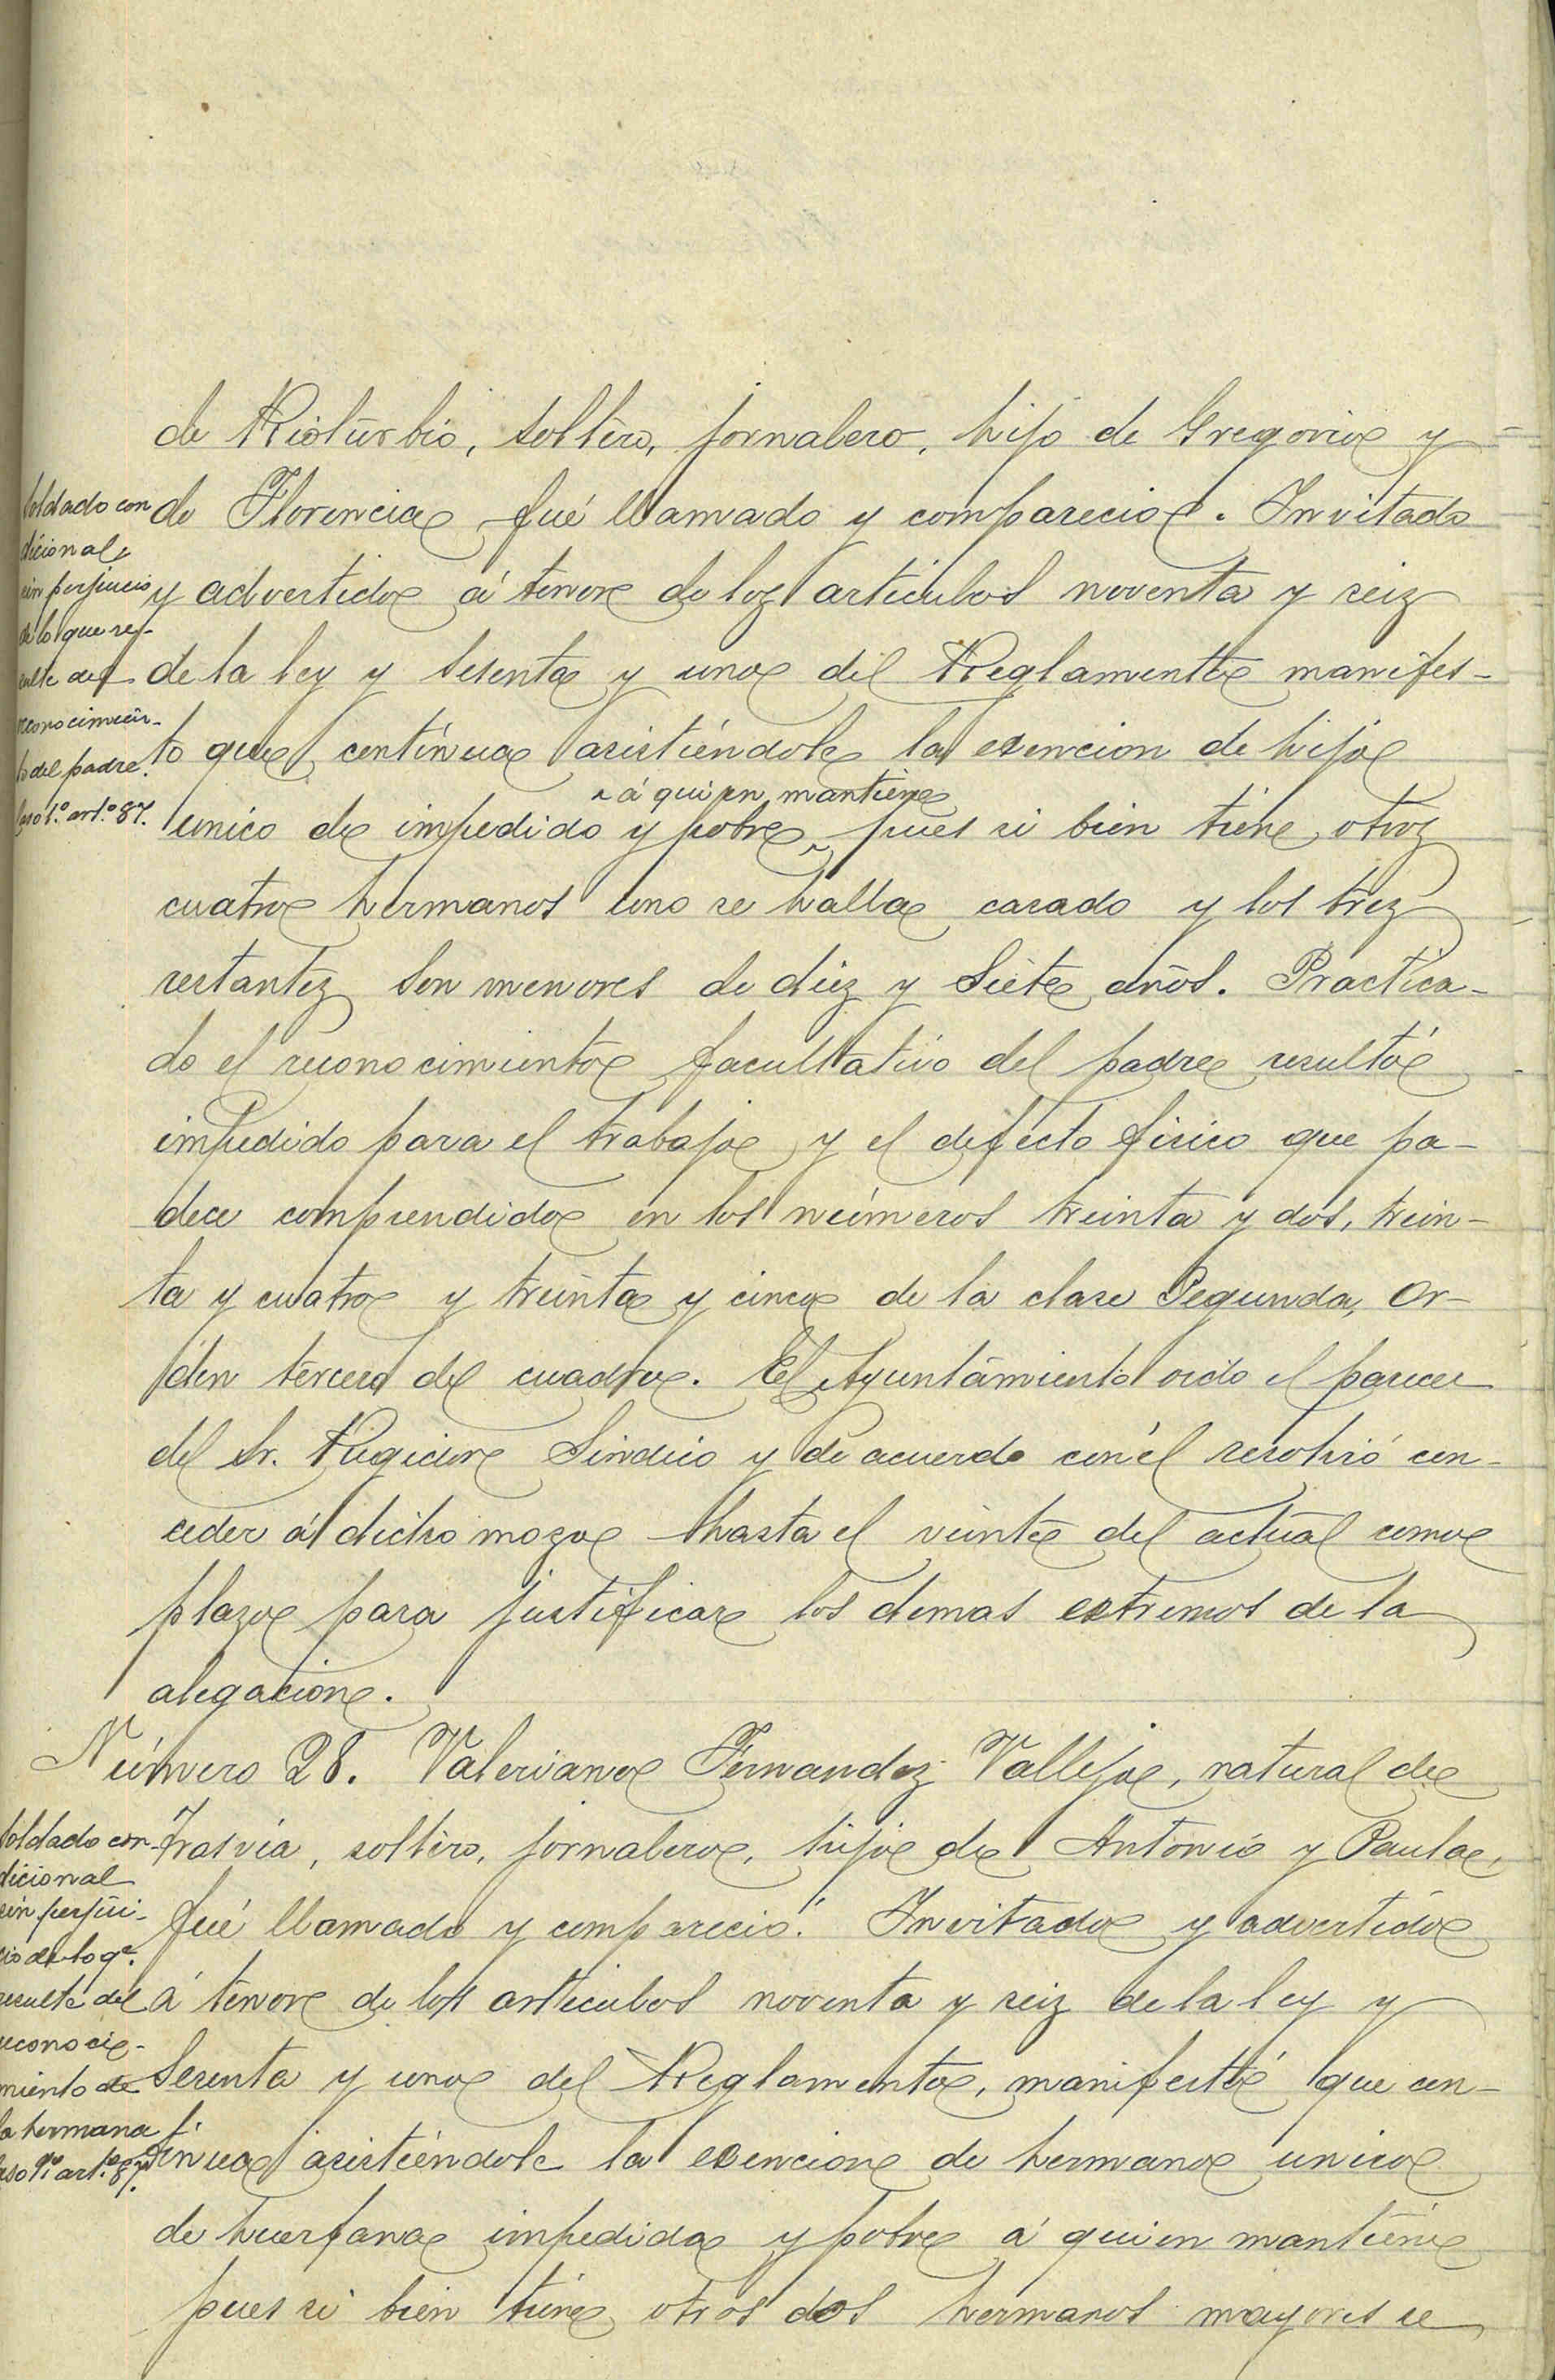 de Rioturbio, soltero, jornalero, hijo de Gregorio y
de Florencia fué llamado y compareció. Invitado
y advertido á tenor de los articulos noventa y seis
de la ley y sesenta y uno del Reglamento manifes-
tó que continua asistiéndole la esencion de hijo
á quien mantiene
unico de impedido y pobre, pues si bien tiene otros
cuatro hermanos uno se halla casado y los tres
restantes son menores de diez y siete años. Practica-
do el reconocimiento facultativo del padre resultó
impedido para el trabajo y el defecto fisico que pa-
dece comprendido en los números treinta y dos, trein-
ta y cuatro y treinta y cinco de la clase Segunda, or-
den tercero del cuadro. El Ayuntamiento oido el parecer
del Sr. Regidor Sindico y de acuerdo con él resolvió con-
ceder á dicho mozo hasta el veinte del actual como
plazo para justificar los demas estremos de la
alegacion.
Soldado con
dicional
sin perjuicio
de lo que re-
sulte del
reconocimien-
to del padre.
Caso 1.º art.º 87.
Número 28. Valeriano Fernandez Vallejo, natural de
Trasvia, soltero, jornalero, hijo de Antonio y Paula,
fué llamado y compareció. Invitado y advertido
á tenor de los articulos noventa y seis de la ley y
sesenta y uno del Reglamento, manifestó que con-
tinua asistiéndole la esencion de hermano unico
de huerfana impedida y pobre á quien mantiene
pues si bien tiene otros dos hermanos mayores se
Soldado con-
dicional
sin perjui-
cio de lo q.e
resulte del
reconoci-
miento de
la hermana
Caso 9.º art.º 87.